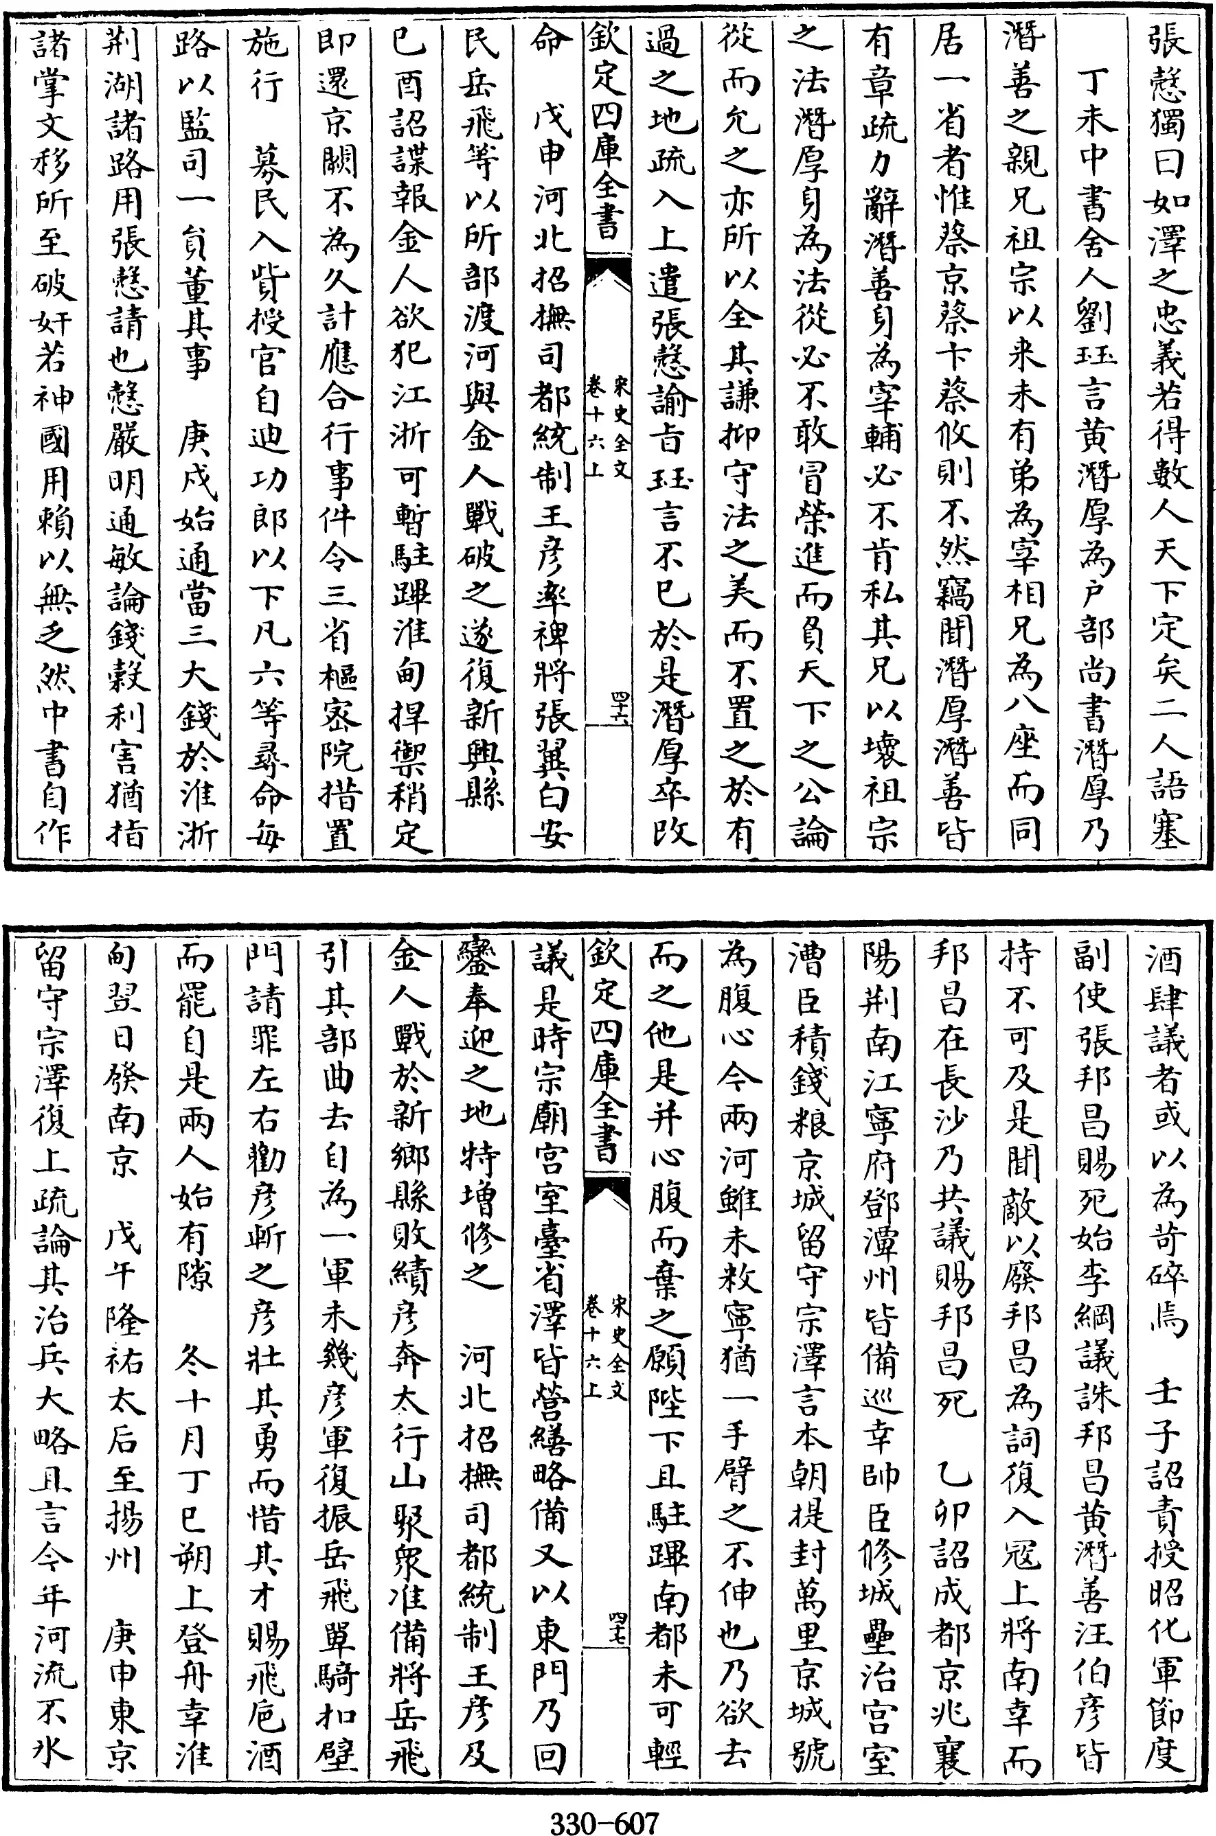 張慤獨曰如澤之忠義若得數人天下定矣二人語塞
丁未中書舍人劉珏言黄潛厚為户部尚書潛厚乃
潛善之親兄祖宗以来未有弟為宰相兄為八座而同
居一省者惟蔡京蔡卞蔡攸則不然竊聞潛厚潛善皆
有章疏力辭潛善身為宰輔必不肯私其兄以壊祖宗
之法潛厚身為法從必不敢冒榮進而負天下之公論
從而允之亦所以全其謙抑守法之美而不置之於有
過之地疏入上遣張慤諭㫖珏言不已於是潛厚卒改
欽定四庫全書
宋史全文
卷十六上
四十六
命　戊申河北招撫司都統制王彦率裨將張翼白安
民岳飛等以所部渡河與金人戰破之遂復新興縣
已酉詔諜報金人欲犯江浙可暫駐蹕淮甸捍禦稍定
即還京闕不為久計應合行事件令三省樞宻院措置
施行　募民入貲授官自迪功郎以下凡六等尋命每
路以監司一員董其事　庚戍始通當三大錢於淮浙
荆湖諸路用張慤請也慤嚴明通敏論錢穀利害猶指
諸掌文移所至破奸若神國用賴以無乏然中書自作
酒肆議者或以為苛碎焉　壬子詔責授昭化軍節度
副使張邦昌賜死始李綱議誅邦昌黄潛善汪伯彦皆
持不可及是聞敵以廢邦昌為詞復入冦上將南幸而
邦昌在長沙乃共議賜邦昌死　乙卯詔成都京兆襄
陽荆南江寧府鄧潭州皆備巡幸帥臣修城壘治宫室
漕臣積錢粮京城留守宗澤言本朝提封萬里京城號
為腹心今兩河雖未敉寧猶一手臂之不伸也乃欲去
而之他是并心腹而棄之願陛下且駐蹕南都未可輕
欽定四庫全書
宋史全文
卷十六上
四十七
議是時宗廟宫室臺省澤皆營繕略備又以東門乃回
鑾奉迎之地特增修之　河北招撫司都統制王彦及
金人戰於新鄉縣敗績彦奔太行山聚衆准備將岳飛
引其部曲去自為一軍未幾彦軍復振岳飛單騎扣壁
門請罪左右勸彦斬之彦壮其勇而惜其才賜飛巵酒
而罷自是兩人始有隙　冬十月丁巳朔上登舟幸淮
甸翌日發南京　戊午隆祐太后至揚州　庚申東京
留守宗澤復上疏論其治兵大略且言今年河流不氷
330-607